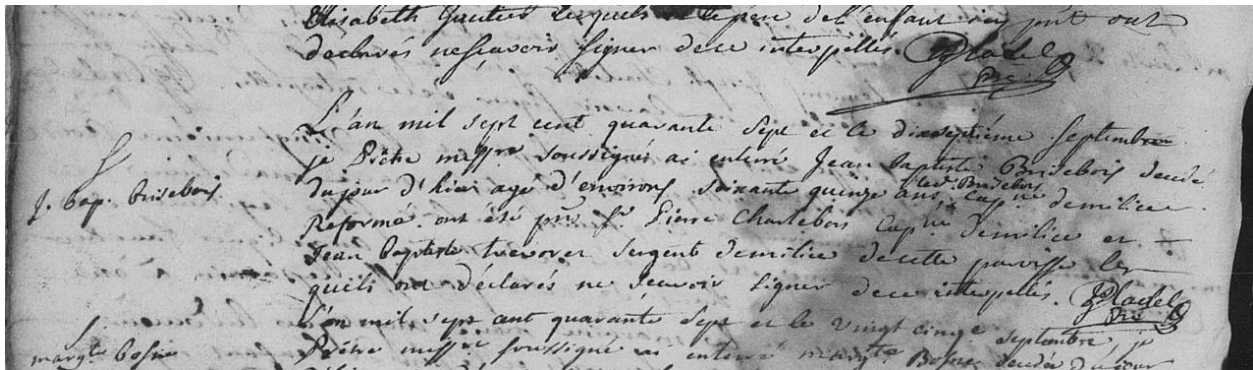 Elisabeth Gautier lesquels et le pere de l'enfant icy pnt ont
déclarés ne sçavoir signer de ce interpellés. JPladel
Ptre
L'an mil sept cent quarante sept et le dixseptiéme septembre
je Prêtre missre soussigné ai enterré Jean baptiste Brisebois décédé
du jour d'hier agé d'environ soixante quinze ans, led. Brisebois capne de milice
J. bap. brisebois.
Reformé. ont été pns Sr Pierre Charlebois Capne de milice et
Jean baptiste sergent de milice de cette paroisse les
quels ont déclarés ne scavoir signer de ce interpellés. JPladel
Ptre
L'an mil sept cent quarante sept et le vingt cinqe septembre je
margte
Prêtre missre soussigné ai enterré margte décédée du jour